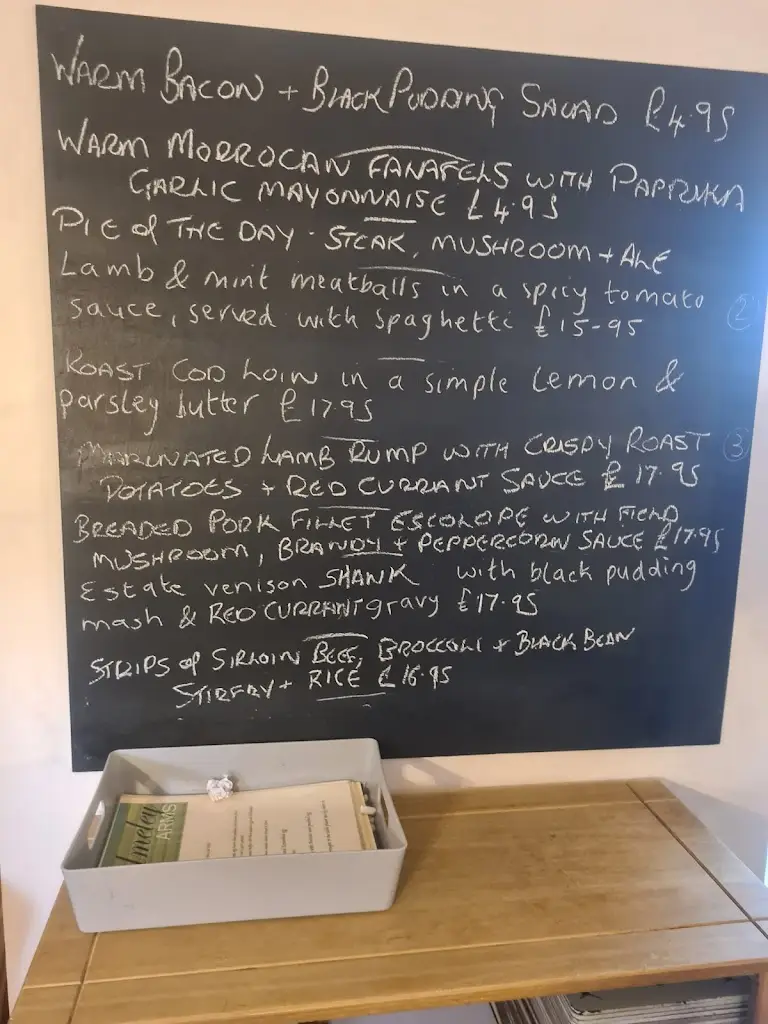 WARM BACON + BLACK PUDDING SALAD £4.95
WARM MORROCAN FALAFELS WITH PAPRIKA
GARLIC MAYONNAISE £4.95
PIE of THE DAY - STEAK, MUSHROOM + ALE
Lamb & mint meatballs in a spicy tomato
sauce, served with spaghetti £15-95
②
ROAST COD LOIN in a simple Lemon &
parsley butter £17.95
MARINATED LAMB RUMP WITH CRISPY ROAST
③
POTATOES + RED CURRANT SAUCE £17.95
BREADED PORK FILLET ESCOLOPE WITH FIELD
MUSHROOM, BRANDY + PEPPERCORN SAUCE £17.95
Estate venison SHANK with black pudding
mash & RED CURRANT gravy £17.95
STRIPS of SIRLOIN BEEF, BROCCOLI + BLACK BEAN
STIRFRY + RICE £16.95
ARMS